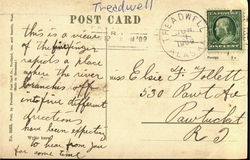 Treadwell
POST CARD
TREADWELL
1909
this is a view
of the finger
rapids a place
where the river
branches off
into five different
directions
have been expecting
to hear from you
for some time
Miss Elsie F Follett
530 Pawt Ave
Pawtucket
R I